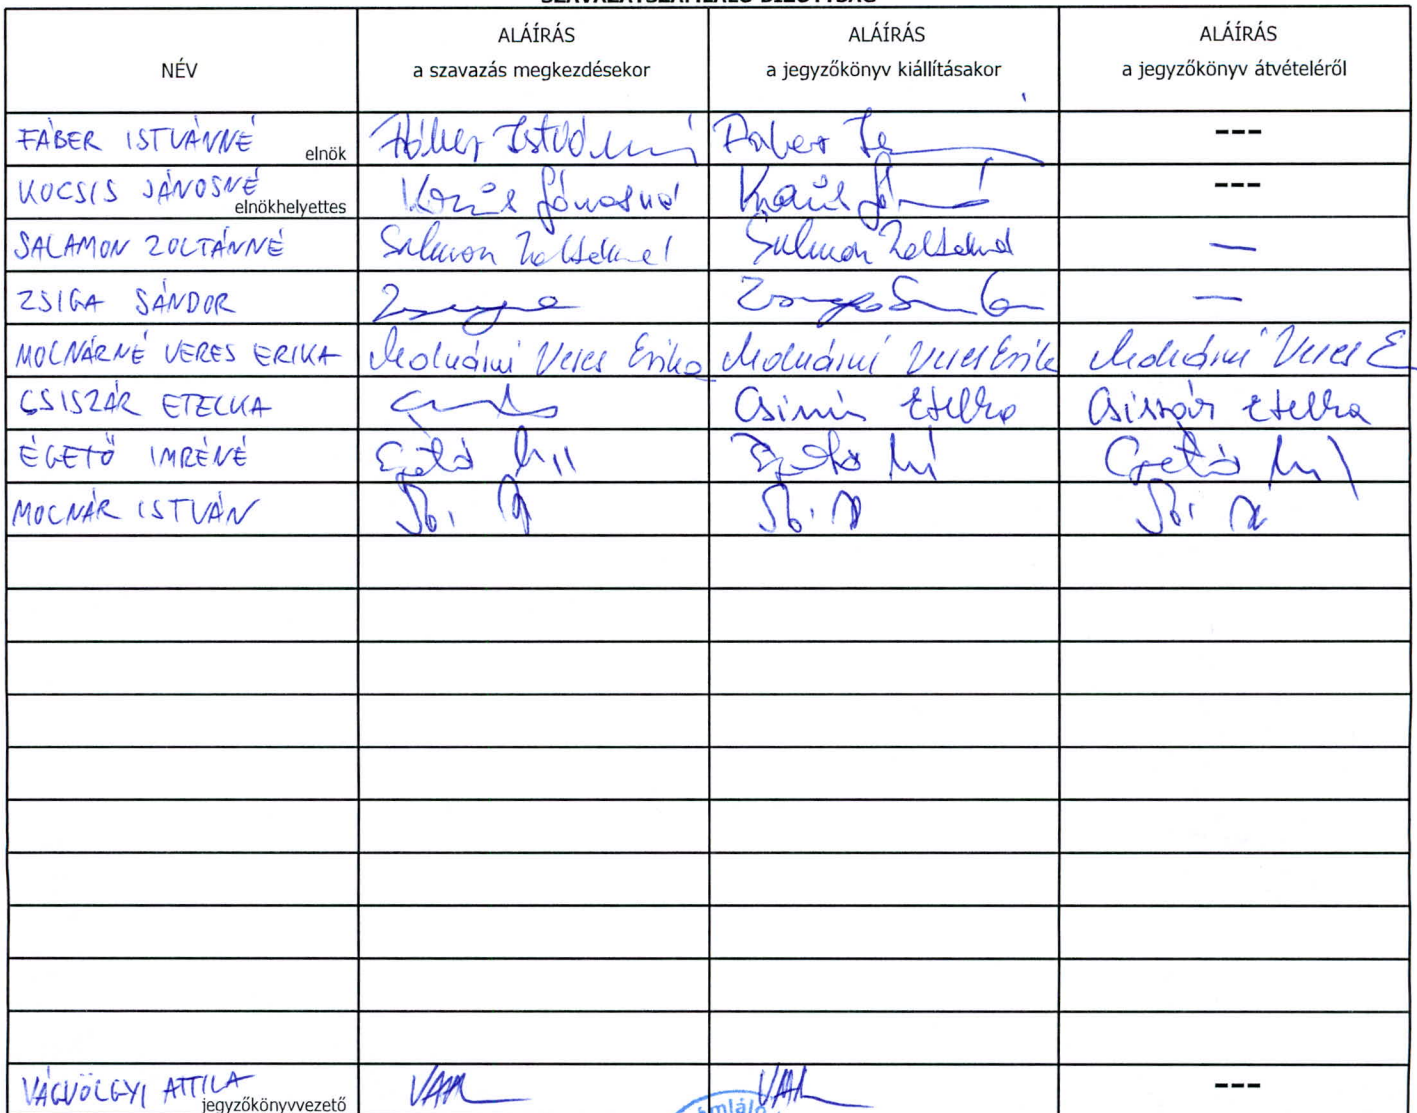 SZAVAZATSZÁMLÁLÓ BIZOTTSÁG
NÉV
ALÁÍRÁS
a szavazás megkezdésekor
ALÁÍRÁS
a jegyzőkönyv kiállításakor
ALÁÍRÁS
a jegyzőkönyv átvételéről
FÁBER ISTVÁNNÉ elnök Fáber Istvánné Fáber ---
KOCSIS JÁNOSNÉ elnökhelyettes Kocsis Jánosné Kocsis ---
SALAMON ZOLTÁNNÉ Salamon Zoltánné Salamon Zoltánné —
ZSIGA SÁNDOR Zsiga Zsiga Sándor —
MOLNÁRNÉ VERES ERIKA Molnárné Veres Erika Molnárné Veres Erika Molnárné Veres E
CSISZÁR ETELKA Csiszár Etelka Csiszár Etelka
ÉGETŐ IMRÉNÉ Égető Égető Égető
MOLNÁR ISTVÁN
VÁGVÖLGYI ATTILA jegyzőkönyvvezető ---